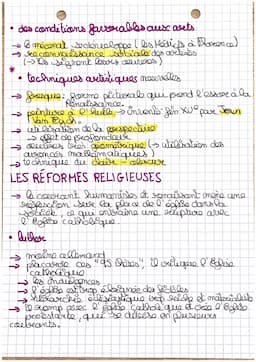 • des conditions favorables aux arts
→ le mécénat se développe (les Médicis à Florence)
→ reconnaissance sociale des artistes
(→ ils signent leurs œuvres)
• techniques artistiques nouvelles
→ fresque: forme picturale qui prend l'essor à la
Renaissance.
→ peinture à l'huile → inventé fin XVe par Jean
Van Eyck.
→ utilisation de la perspective
→ effet de profondeur
→ œuvres très géométrique (→ utilisation des
avancés mathématiques)
→ technique du clair-obscur
LES RÉFORMES RELIGIEUSES
→ le courant humaniste et renaissant mène une
réflexion sur la place de l'église dans la
société, ce qui entraîne une rupture avec
l'église catholique
• Luther
→ moine allemand
→ placarde ces "95 thèses", il critique l'église
catholique
→ les indulgences
→ l'église est trop éloignée des fidèles
→ hiérarchie ecclésiastique trop riche et matérialiste
→ il romp avec l'église catholique et crée l'église
protestante, qui se divise en plusieurs
courants.